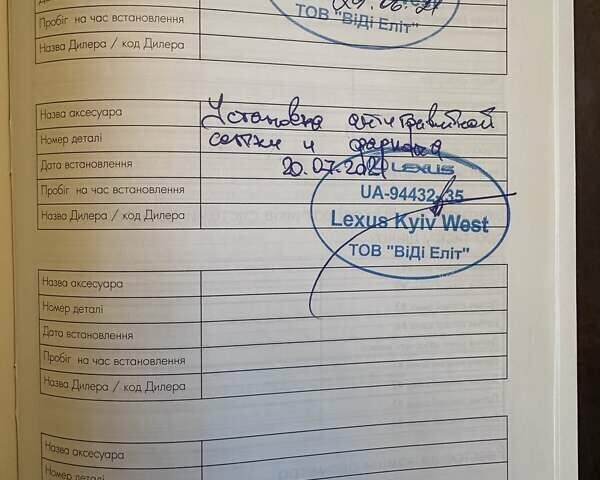 Пробіг на час встановлення
Назва Дилера / код Дилера
ТОВ "ВіДі Еліт"
Назва аксесуара
Установка антигравийной
Номер деталі
сетки и фаркопа
Дата встановлення
20.07.2021
LEXUS
Пробіг на час встановлення
UA-94432-35
Назва Дилера / код Дилера
Lexus Kyiv West
ТОВ "ВіДі Еліт"
Назва аксесуара
Номер деталі
Дата встановлення
Пробіг на час встановлення
Назва Дилера / код Дилера
Назва аксесуара
Номер деталі